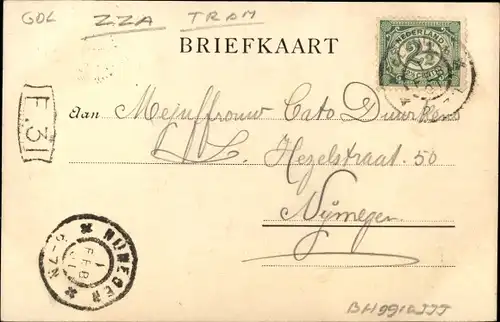 GOL ZZA TRAM
BRIEFKAART
NEDERLAND
2½
CENT
F.31
Aan Mejuffrouw Cato Duurkens
L.L.
Hezelstraat 50
Nijmegen
NIJMEGEN
1 FEB
6-7N